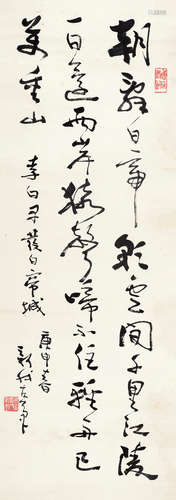 朝辞白帝彩雲間千里江陵
一日還兩岸猿聲啼不住輕舟已
萬重山 李白早發白帝城
庚申春
新我左筆